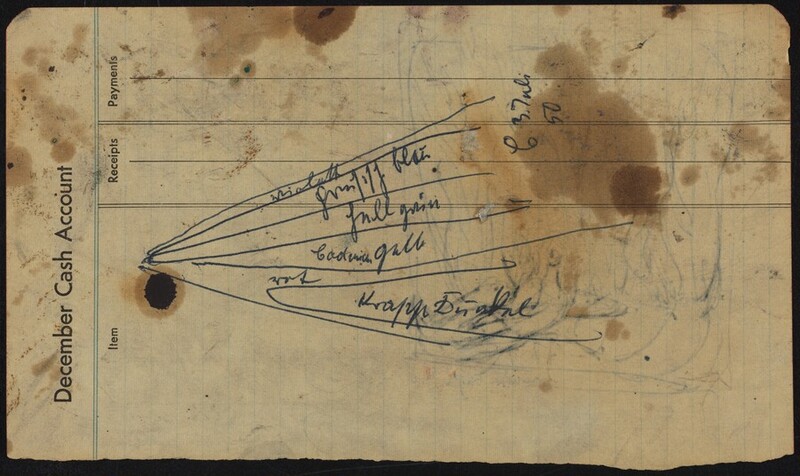 December Cash Account
Item
Receipts
Payments
violett
preussisch blau
hell grün
Cadmium gelb
rot
Krapp Dunkel
3. Juli
50